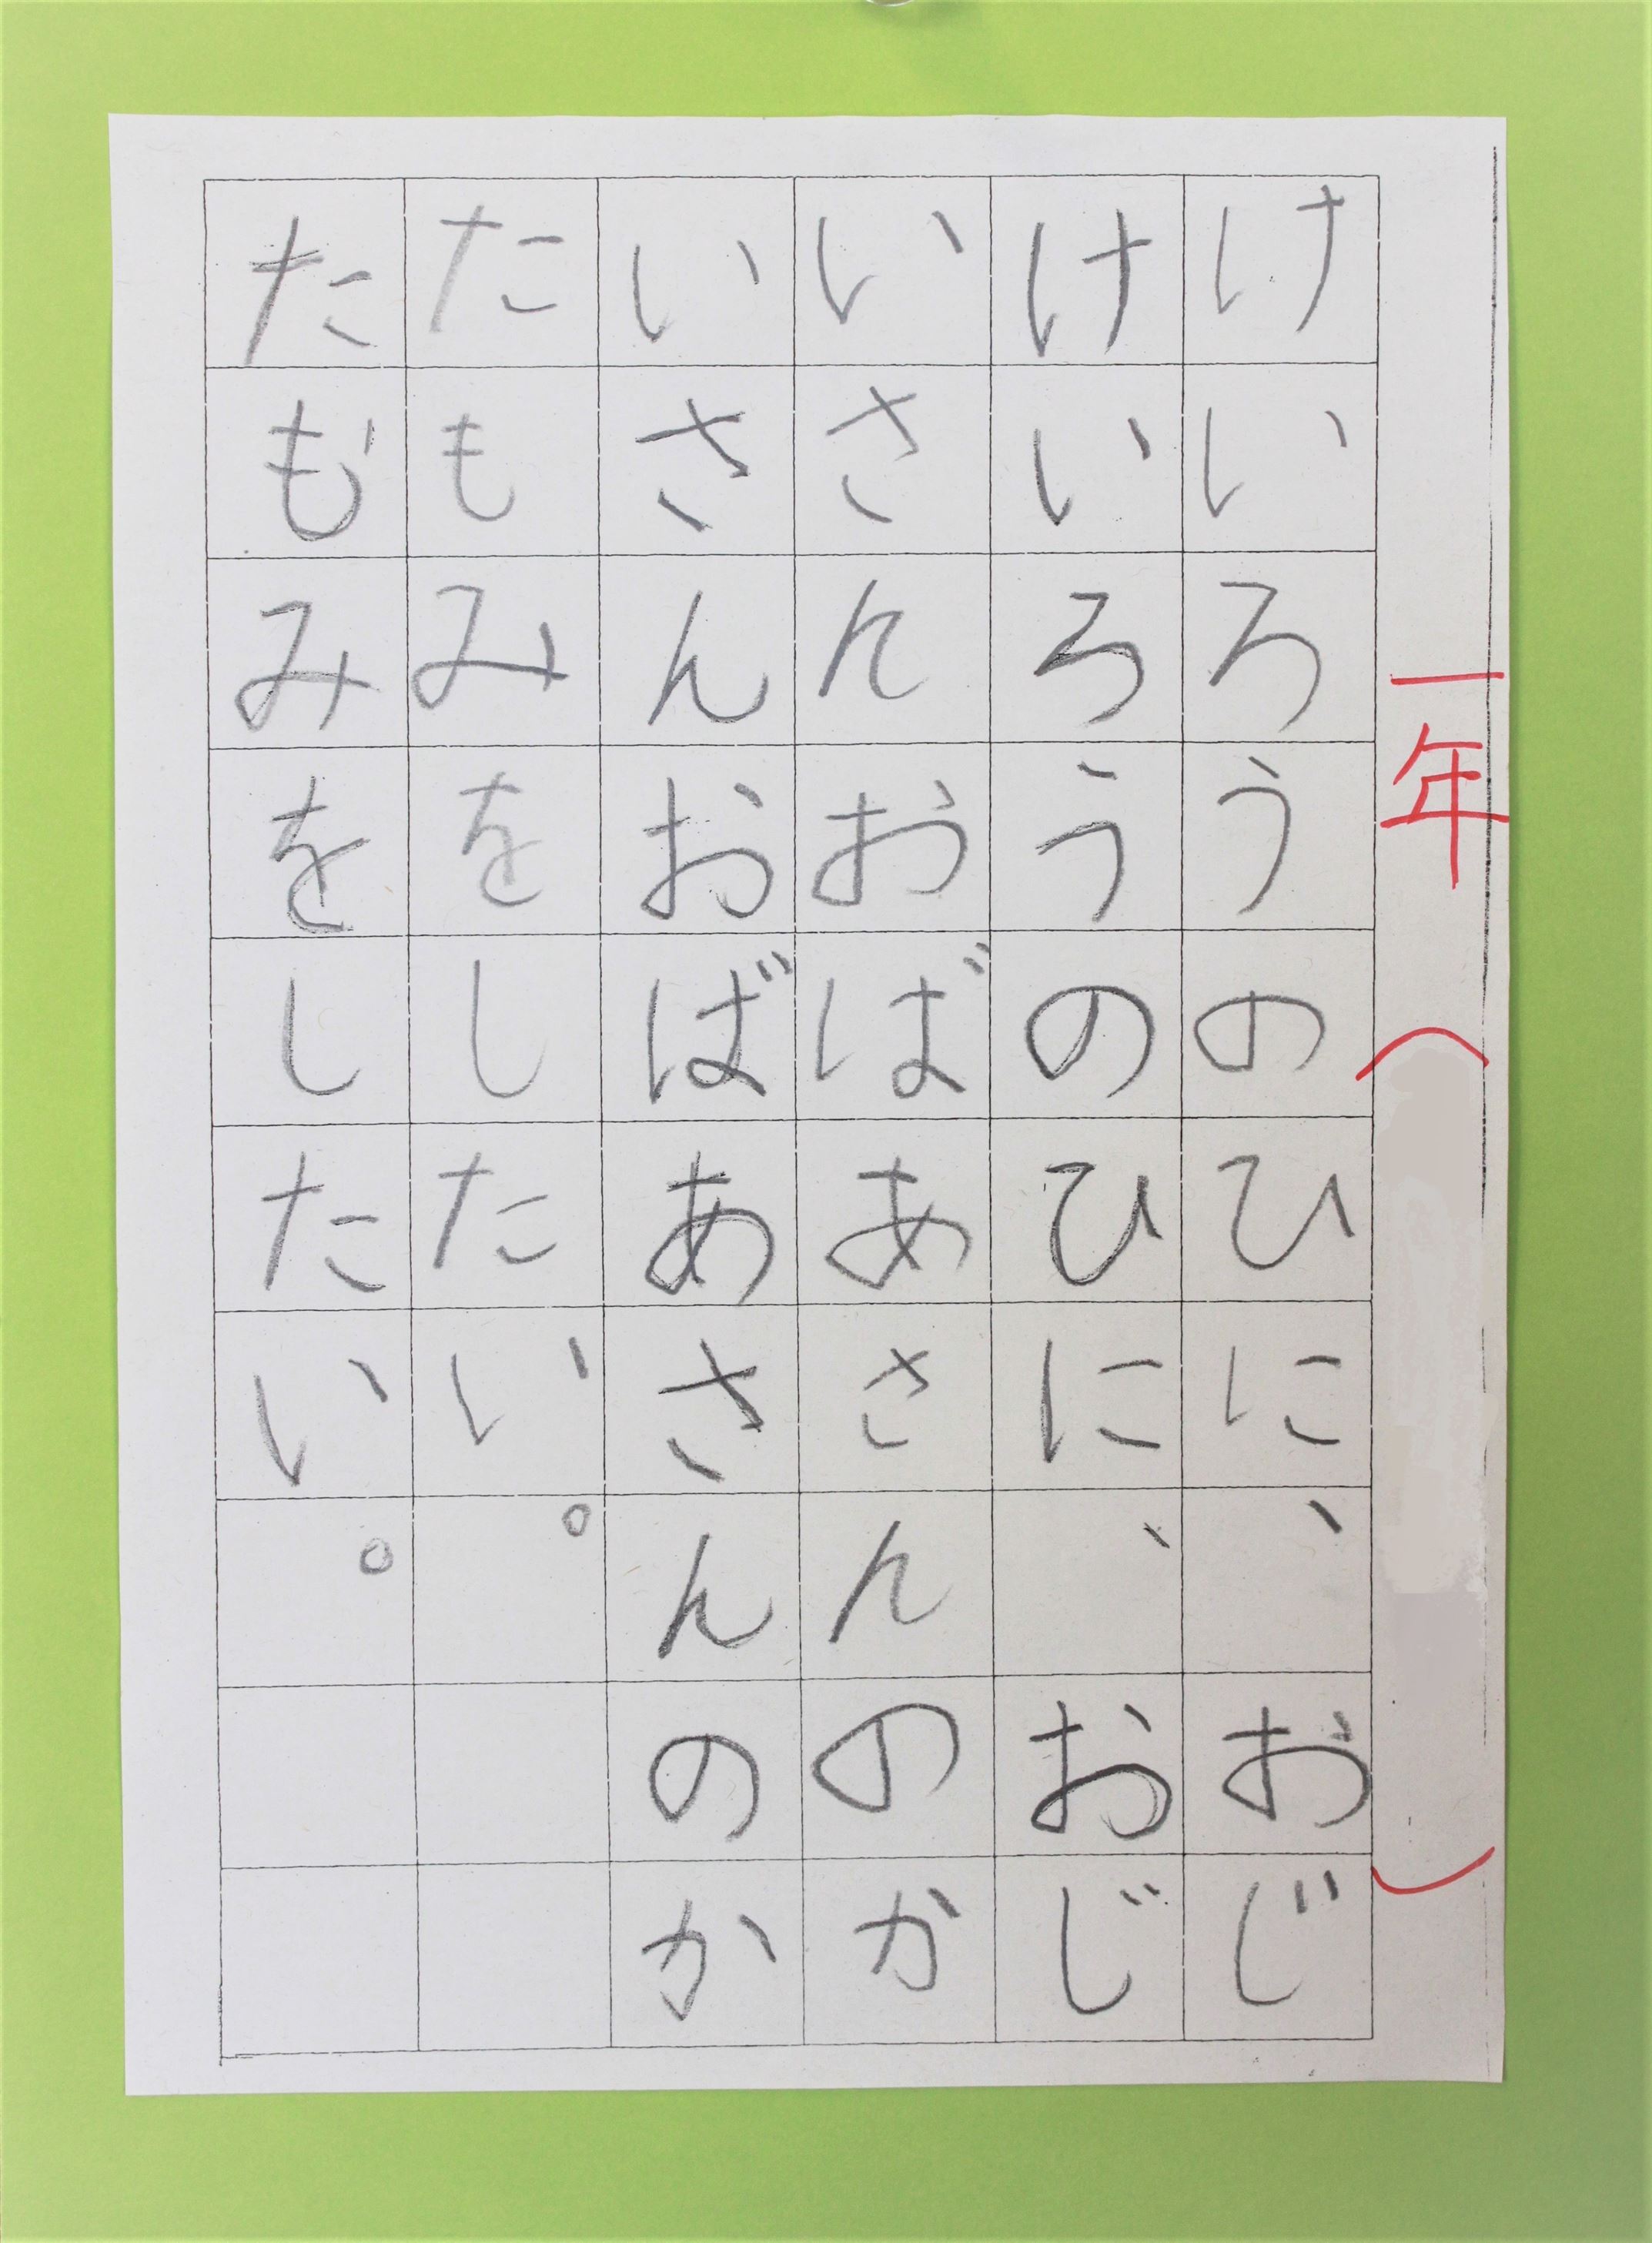 一年（　）
けいろうのひに、おじ
けいろうのひに、おじ
いさんおばあさんのか
いさんおばあさんのか
たもみをしたい。
たもみをしたい。